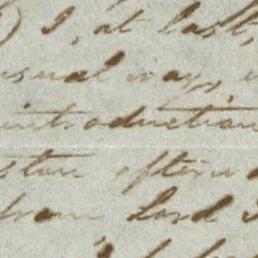 ) I, at last,
usual way,
introduction
afterw
from Lord